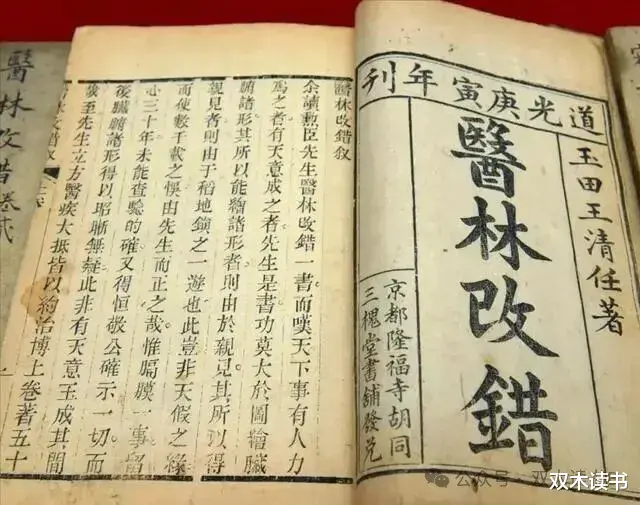 道光庚寅年刊
玉田王清任著
醫林改錯
京都隆福寺胡同
三槐堂書舖發兌
醫林改錯敘
余讀勲臣先生醫林改錯一書而嘆天下事有人力
為之者有天意成之者先生是書功莫大於圖繪臟
腑諸形其所以能繪諸形者則由於親見其所以得
親見者則由于稻地鎮之一遊也此豈非天假之緣
而使數千載之悞由先生而正之哉惟膈膜一事留
心三十年未能查驗的確又得恒敬公確示一切而
後臟腑諸形得以昭晰無疑此非有天意玉成其間
歟至先生立方醫疾大抵皆以約治博上卷著五十
林改錯敘
一
醫林改錯卷貮
公众号
双木读书